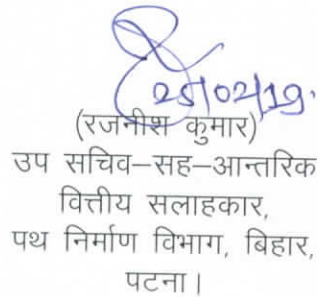 25/02/19.
(रजनीश कुमार)
उप सचिव–सह–आन्तरिक
वित्तीय सलाहकार,
पथ निर्माण विभाग, बिहार,
पटना।